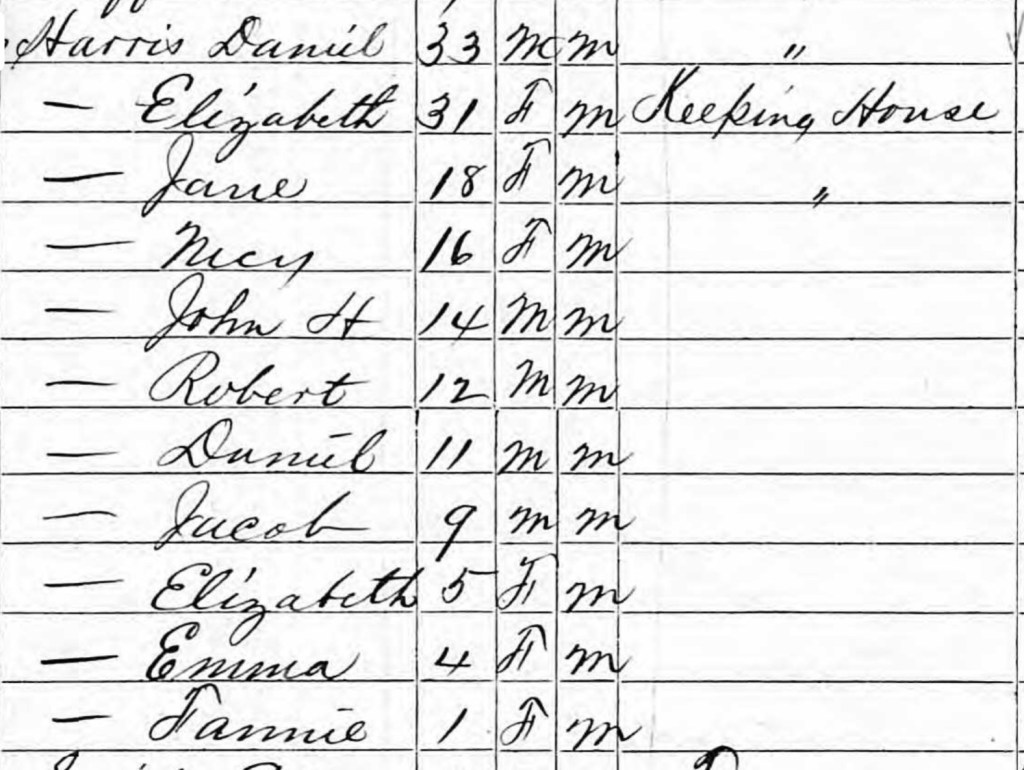 Harris Daniel 33 M M "
— Elizabeth 31 F M Keeping House
— Jane 18 F M "
— Nicy 16 F M
— John H 14 M M
— Robert 12 M M
— Daniel 11 M M
— Jacob 9 M M
— Elizabeth 5 F M
— Emma 4 F M
— Fannie 1 F M